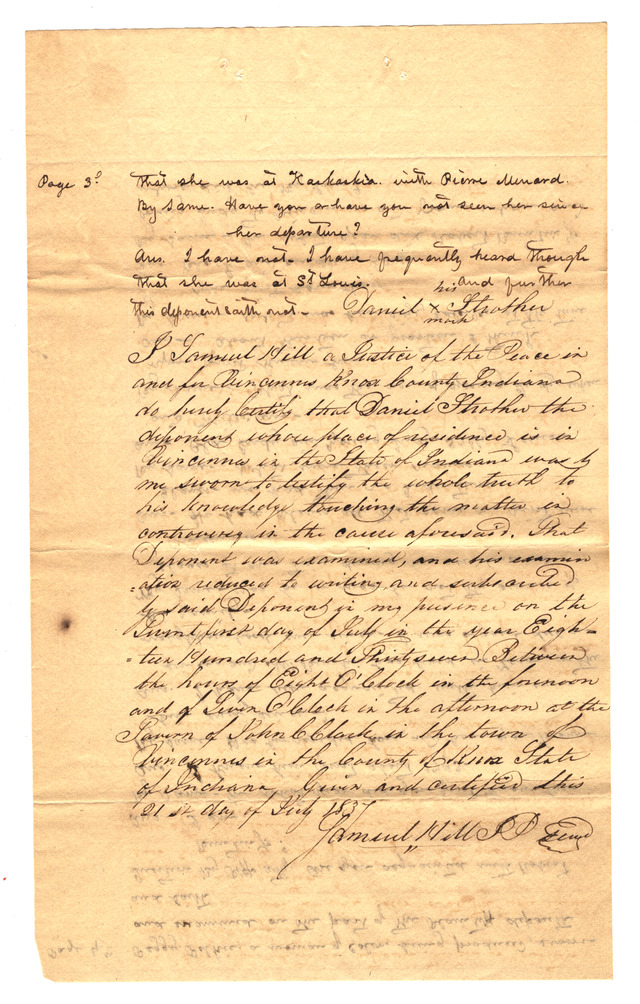 Page 3d
that she was at Kaskaskia with Pierre Menard.
By Same. Have you or have you not seen her since
her departure?
Ans. I have not. I have frequently heard though
that she was at St Louis. and further
this deponent saith not—
his
Daniel x Strother
mark
I Samuel Hill a Justice of the Peace in
and for Vincennes Knox County Indiana
do herely Certify that Daniel Strother the
deponent whose place of residence is in
Vincennes in the State of Indiana was by
me sworn to testify the whole truth to
his knowledge touching the matter in
controversy in the cause aforesaid. That
Deponent was examined, and his examin
=ation reduced to writing and subscribed
by said Deponent in my presence on the
Twenty first day of July in the year Eigh=
=teen Hundred and Thirty seven Between
the hours of Eight O'Clock in the forenoon
and of Seven O'Clock in the afternoon at the
Tavern of John C Clark in the town of
Vincennes in the County of Knox State
of Indiana Given and certified this
21st day of July 1837
Samuel Hill JP Seal